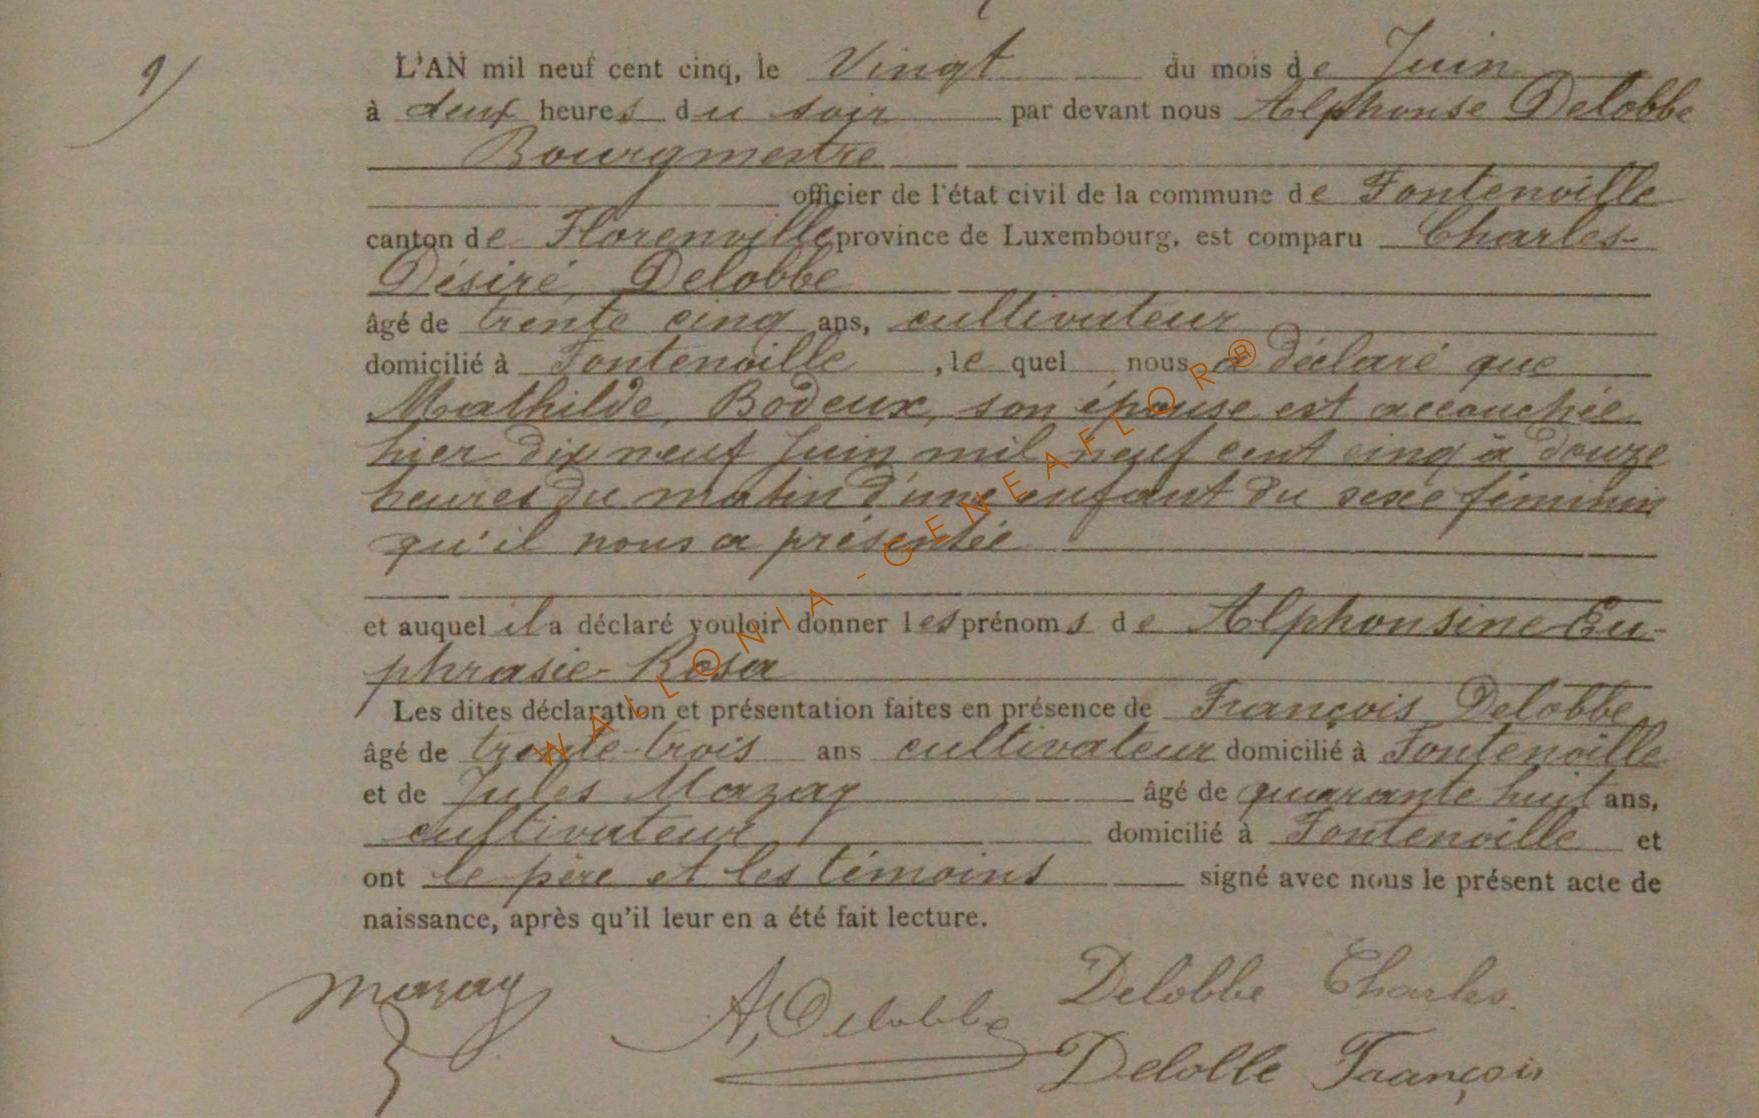 9/
L'AN mil neuf cent cinq, le Vingt du mois de Juin
à deux heures du soir par devant nous Alphonse Delobbe
Bourgmestre
officier de l'état civil de la commune de Fontenoille
canton de Florenville province de Luxembourg, est comparu Charles-
Désiré Delobbe
âgé de trente cinq ans, cultivateur
domicilié à Fontenoille, le quel nous a déclaré que
Mathilde, Bodeux, son épouse est accouchée
hier dix neuf Juin mil neuf cent cinq à douze
heures du matin d'une enfant du sexe féminin
qu'il nous a présentée
et auquel il a déclaré vouloir donner les prénoms de Alphonsine-Eu-
phrasie-Rosa
Les dites déclaration et présentation faites en présence de François Delobbe
âgé de trente-trois ans cultivateur domicilié à Fontenoille
et de Jules Mazay âgé de quarante huit ans,
cultivateur domicilié à Fontenoille et
ont le père et les témoins signé avec nous le présent acte de
naissance, après qu'il leur en a été fait lecture.
Mazay A, Delobbe Delobbe Charles.
Delobbe François
WALLONIA-GENEAFLOR®